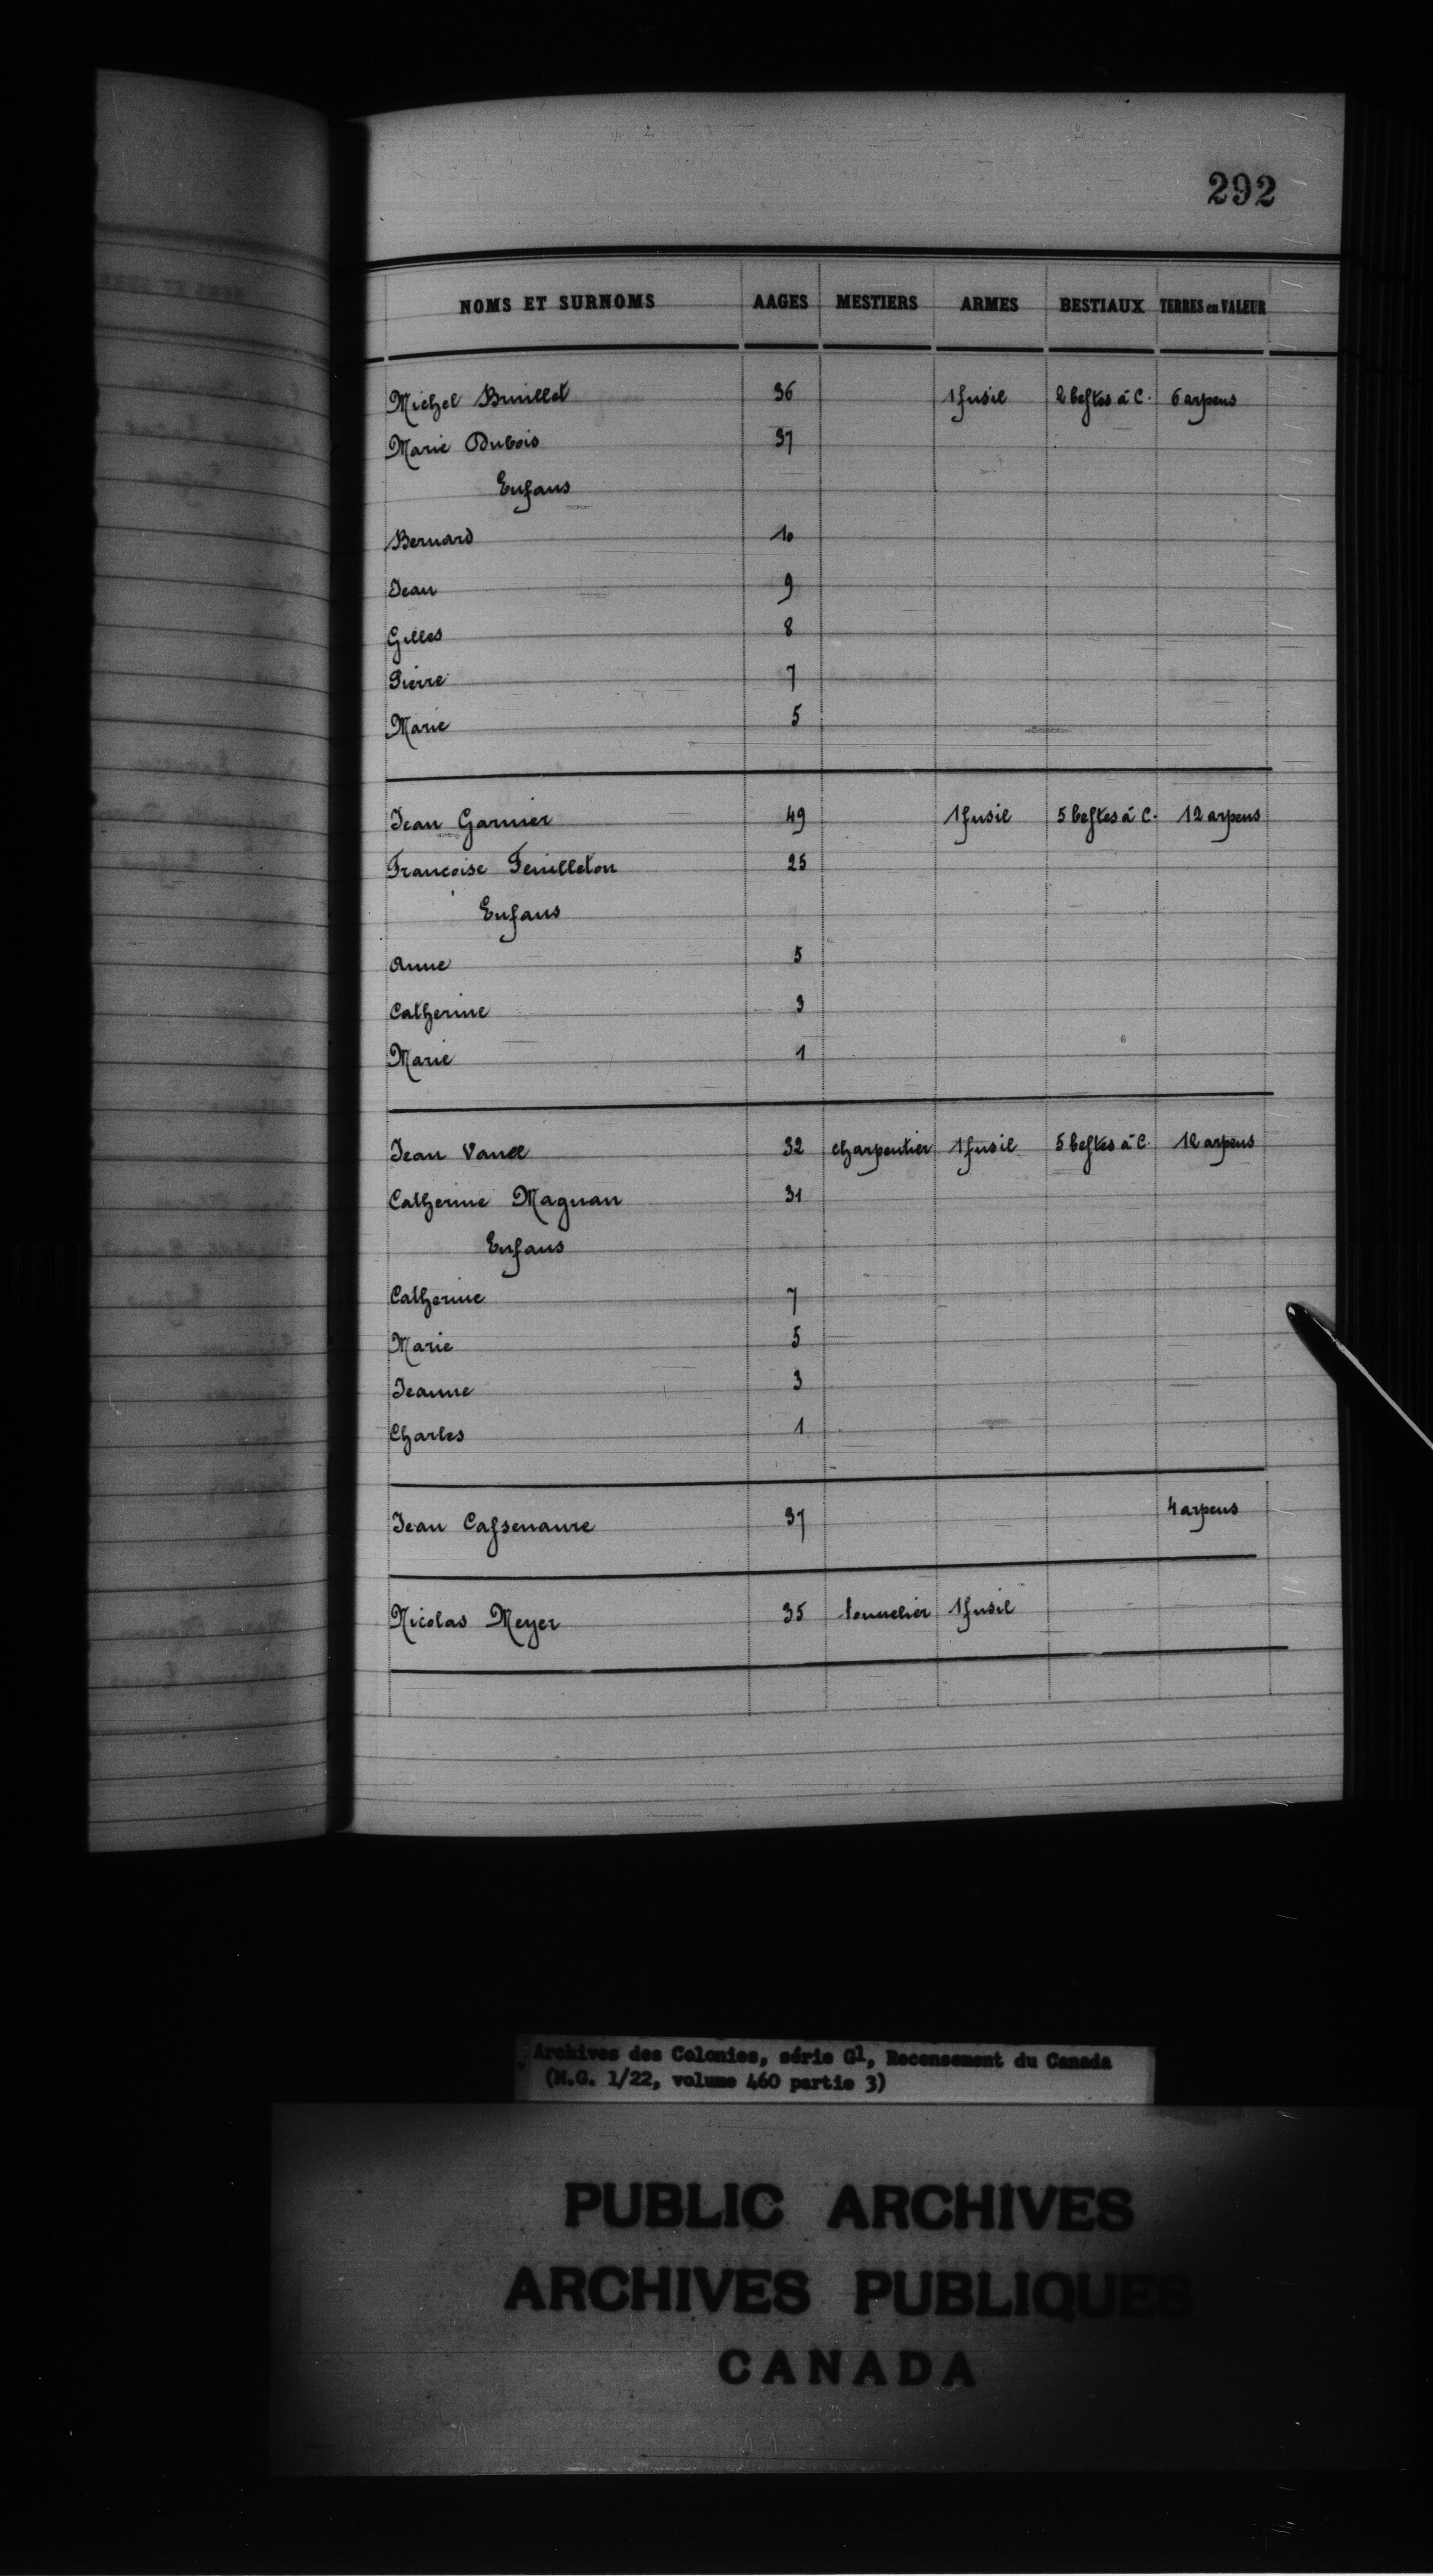 292
NOMS ET SURNOMS AAGES MESTIERS ARMES BESTIAUX TERRES en VALEUR
Michel Bruillet 36 1 fusil 2 bestes à C. 6 arpens
Marie Dubois 37
Enfans
Bernard 10
Jean 9
Gilles 8
Pierre 7
Marie 5
Jean Garnier 49 1 fusil 5 bestes à C. 12 arpens
Francoise Feuilleton 25
Enfans
Anne 5
Catherine 3
Marie 1
Jean Vanel 32 charpentier 1 fusil 5 bestes à C. 12 arpens
Catherine Magnan 31
Enfans
Catherine 7
Marie 5
Jeanne 3
Charles 1
Jean Cassenaure 37 4 arpens
Nicolas Meyer 35 tonnelier 1 fusil
Archives des Colonies, série G1, Recensement du Canada
(M.G. 1/22, volume 460 partie 3)
PUBLIC ARCHIVES
ARCHIVES PUBLIQUES
CANADA